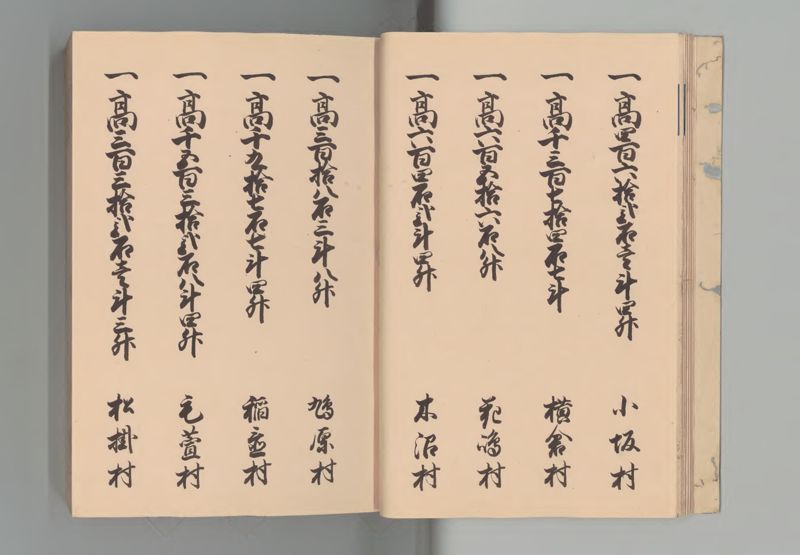 一高四百六拾弐石壱斗四升 小坂村
一高千三百七拾四石七斗 横倉村
一高六百五拾六石八升 花嶋村
一高六百四石弐斗四升 木沼村
一高三百拾八石三斗八升 鳩原村
一高千九拾七石七斗四升 稲立村
一高千五百三拾弐石八斗四升 毛萱村
一高三百三拾弐石壱斗三升 松掛村